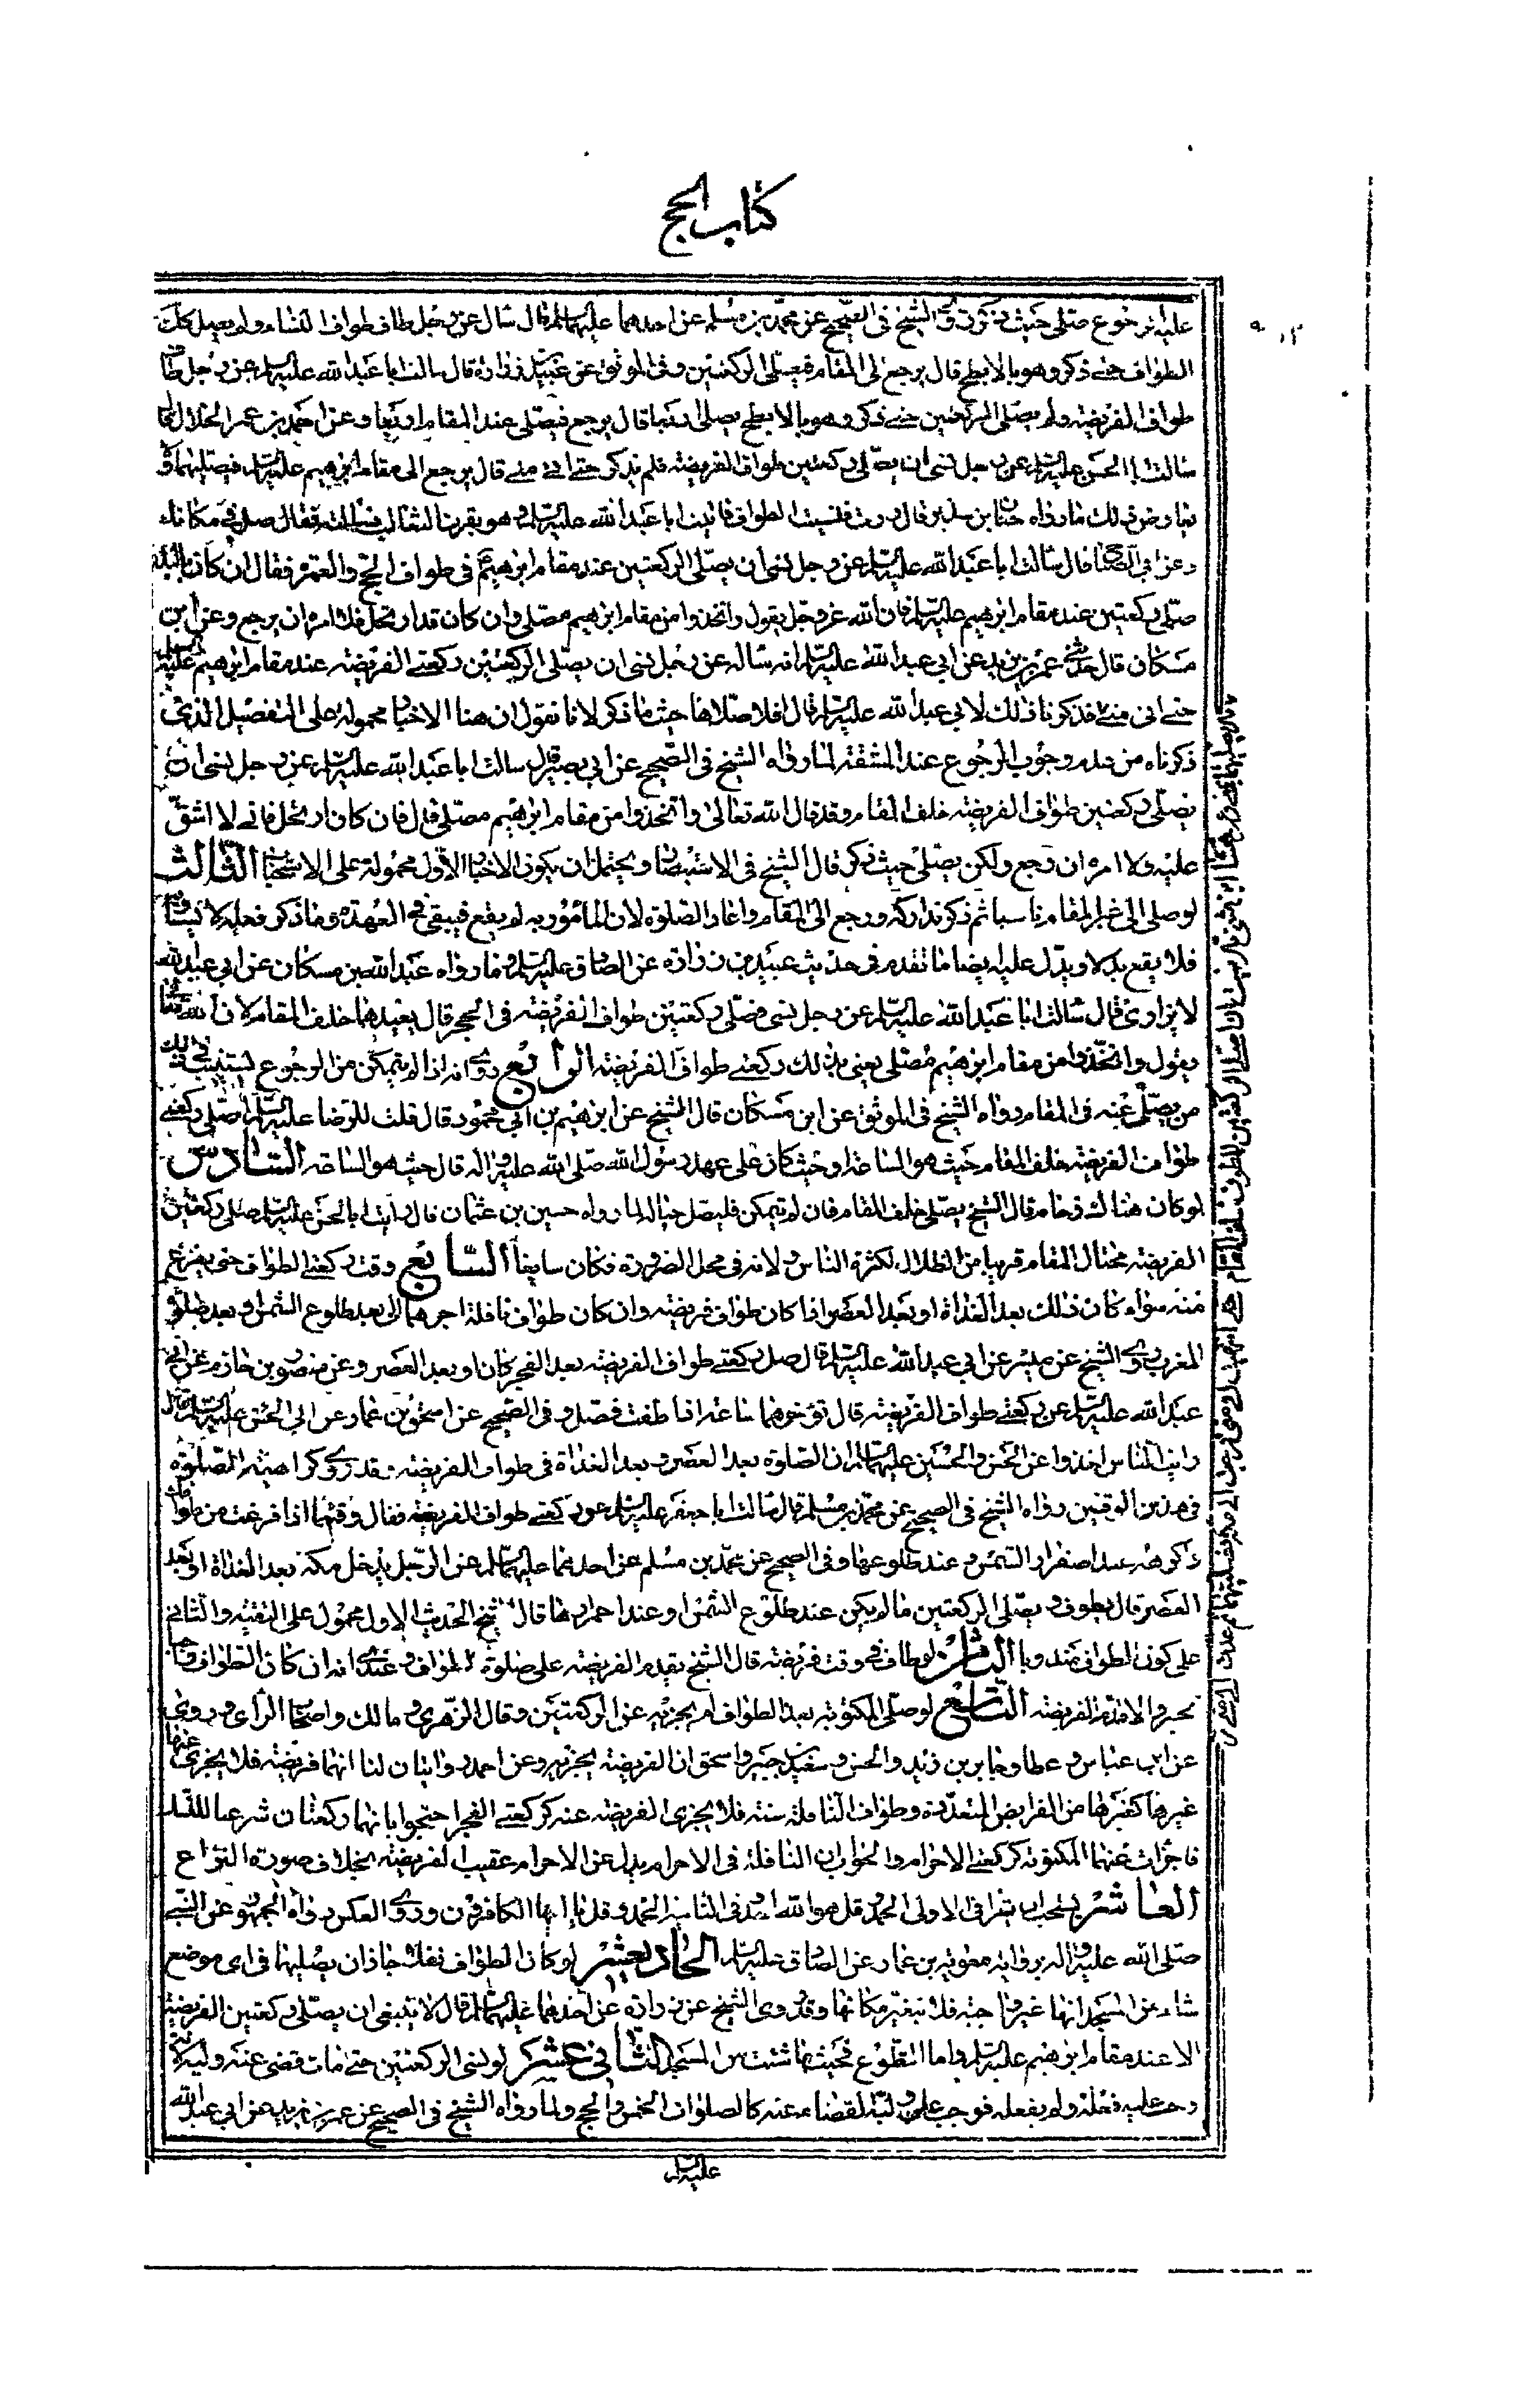 كتاب الحج
عليه الرجوع صلى حيث تذكر روى الشيخ في الصحيح عن محمد بن مسلم عن احدهما عليهما السلم قال سال عن رجل طاف طواف النساء ولم يصل لذلك
الطواف حتى ذكر وهو بالابطح قال يرجع الى المقام فيصلى الركعتين وفى الموثق عن عبيد بن زرارة قال سالت ابا عبد الله عليه السلم عن رجل طاف
طواف الفريضة ولم يصلى الركعتين حتى ذكر وهو بالابطح يصلى اربعا قال يرجع فيصلى عند المقام اربعا وعن احمد بن عمر الحلال قال
سالت ابا الحسن عليه السلم عن رجل نسى ان يصلى ركعتين طواف الفريضة فلم يذكر حتى اتى منى قال يرجع الى مقام ابرهيم عليه السلم فيصليهما
ذلك ما رواه حنان بن سدير قال زرت فنسيت الطواف فاتيت ابا عبد الله عليه السلم وهو بقرن الثعالب فسالته فقال صل في مكانك
قال سالت ابا عبد الله عليه السلم عن رجل نسى ان يصلى الركعتين عند مقام ابرهيم في طواف الحج والعمرة فقال ان كان بالبلد
صلى ركعتين عند مقام ابرهيم عليه السلم فان الله عز وجل يقول واتخذوا من مقام ابرهيم مصلى وان كان قد ارتحل فلا امره ان يرجع وعن ابن
مسكان قال حدثنى عمر بن يزيد عن ابي عبد الله عليه السلم انه ساله عن رجل نسى ان يصلى الركعتين ركعتى الفريضة عند مقام ابرهيم عليه السلم
حتى اتى منى فذكرنا ذلك لابي عبد الله عليه السلم قال افلا صلاهما حيث ما ذكر لانا نقول ان هذه الاخبار محمولة على التفصيل الذى
ذكرناه من عدم وجوب الرجوع عند المشقة لما رواه الشيخ في الصحيح عن ابي بصير قال سالت ابا عبد الله عليه السلم عن رجل نسى ان
يصلى ركعتين طواف الفريضة خلف المقام وقد قال الله تعالى واتخذوا من مقام ابرهيم مصلى قال فان كان ارتحل فانى لا اشق
عليه ولا امره ان يرجع ولكن يصلى حيث ذكر قال الشيخ في الاستبصار ويحتمل ان يكون الاخبار الاول محمولة على الاستحباب الثالث
لو صلى الى غير المقام ناسيا ثم ذكر تداركه ورجع الى المقام واعاد الصلوة لان المامور به لم يقع فيبقى في العهدة وما ذكر فعله لا
فلا يقع بدلا ويدل عليه ايضا ما تقدم في حديث عبيد بن زرارة عن الصادق عليه السلم وما رواه عبد الله بن مسكان عن ابي عبد الله
الابزارى قال سالت ابا عبد الله عليه السلم عن رجل نسى فصلى ركعتين طواف الفريضة في الحجر قال يعيدهما خلف المقام لان الله تعالى
يقول واتخذوا من مقام ابرهيم مصلى يعنى بذلك ركعتى طواف الفريضة الرابع روى انه اذا لم يتمكن من الرجوع استنيب في ذلك
من يصلى عنه في المقام رواه الشيخ في الموثق عن ابن مسكان قال الشيخ عن ابرهيم بن ابي محمود قال قلت للرضا عليه السلم اصلى ركعتى
طواف الفريضة خلف المقام حيث هو الساعة او حيث كان على عهد رسول الله صلى الله عليه واله قال حيث هو الساعة السادس
لو كان هناك زحام قال الشيخ يصلى خلف المقام فان لم يتمكن فليصل حياله لما رواه حسين بن عثمان قال رايت ابا الحسن عليه السلم صلى ركعتين
الفريضة بحيال المقام قريبا من الظلال لكثرة الناس ولانه في محل الضرورة فكان سايغا السابع وقت ركعتى الطواف حين يفرغ
منه سواء كان ذلك بعد الغداة او بعد العصر اذا كان طواف فريضة وان كان طواف نافلة اخرهما الى بعد طلوع الشمس او بعد صلوة
المغرب روى الشيخ عن ميسر عن ابي عبد الله عليه السلم قال صل ركعتى طواف الفريضة بعد الفجر كان او بعد العصر وعن منصور بن حازم عن ابي
عبد الله عليه السلم عن ركعتى طواف الفريضة قال لا تؤخرهما ساعة اذا طفت فصل وفى الصحيح عن اسحق بن عمار عن ابي الحسن عليه السلم قال
رايت الناس اخذوا عن الحسن والحسين عليهما السلم الا الصلوة بعد العصر وبعد الغداة في طواف الفريضة وقد روى كراهية الصلوة
في هذين الوقتين رواه الشيخ في الصحيح عن محمد بن مسلم قال سالت ابا جعفر عليه السلم عن ركعتى طواف الفريضة فقال وقتهما اذا فرغت من طوافك
واكرهه عند اصفرار الشمس وعند طلوعها وفى الصحيح عن محمد بن مسلم عن احدهما عليهما السلم عن الرجل يدخل مكة بعد الغداة او بعد
العصر قال يطوف ويصلى الركعتين ما لم يكن عند طلوع الشمس وعند احمرارها قال الشيخ الحديث الاول محمول على التقية والثانى
على كون الطواف مندوبا الثامن لو طاف في وقت فريضة قال الشيخ يقدم الفريضة على صلوة الطواف وعندى انه ان كان الطواف واجبا
تخير والا قدم الفريضة التاسع لو صلى المكتوبة بعد الطواف لم يجزيه عن الركعتين وقال الزهرى ومالك واصحاب الراى وروى
عن ابن عباس وعطا وجابر بن زيد والحسن وسعيد بن جبير واسحق ان الفريضة يجزيه وعن احمد روايتان لنا انهما فريضة فلا يجزى عنها
غيرها كغيرها من الفرايض المتعددة وطواف النافلة سنة فلا يجزى الفريضة عنه كركعتى الفجر احتجوا بانهما ركعتان شرعا للنسك
فاجزات عنهما المكتوبة كركعتى الاحرام والجواب ان النافلة في الاحرام بدل عن الاحرام عقيب الفريضة بخلاف صورة النزاع
العاشر يستحب ان يقرا في الاولى الحمد وقل هو الله احد وفى الثانية الحمد وقل يا ايها الكافرون وروى العكس رواه الجمهور عن النبى
صلى الله عليه واله برواية معوية بن عمار عن الصادق عليه السلم الحاديعشر لو كان الطواف نفلا جاز ان يصليهما في اى موضع
شاء من المسجد انها غير واجبة فلا يتغير مكانها وقد روى الشيخ عن زرارة عن احدهما عليهما السلم قال لا ينبغى ان يصلى ركعتين الفريضة
الا عند مقام ابرهيم عليه السلم واما التطوع فحيث ما شئت من المسجد الثانى عشر لو نسى الركعتين حتى مات قضى عنه وليه لانه
وجب عليه فعله ولم يفعله فوجب على وليه القضاء عنه كالصلوات الخمس والحج ولما رواه الشيخ في الصحيح عن عمر بن يزيد عن ابي عبد الله
عليه السلم